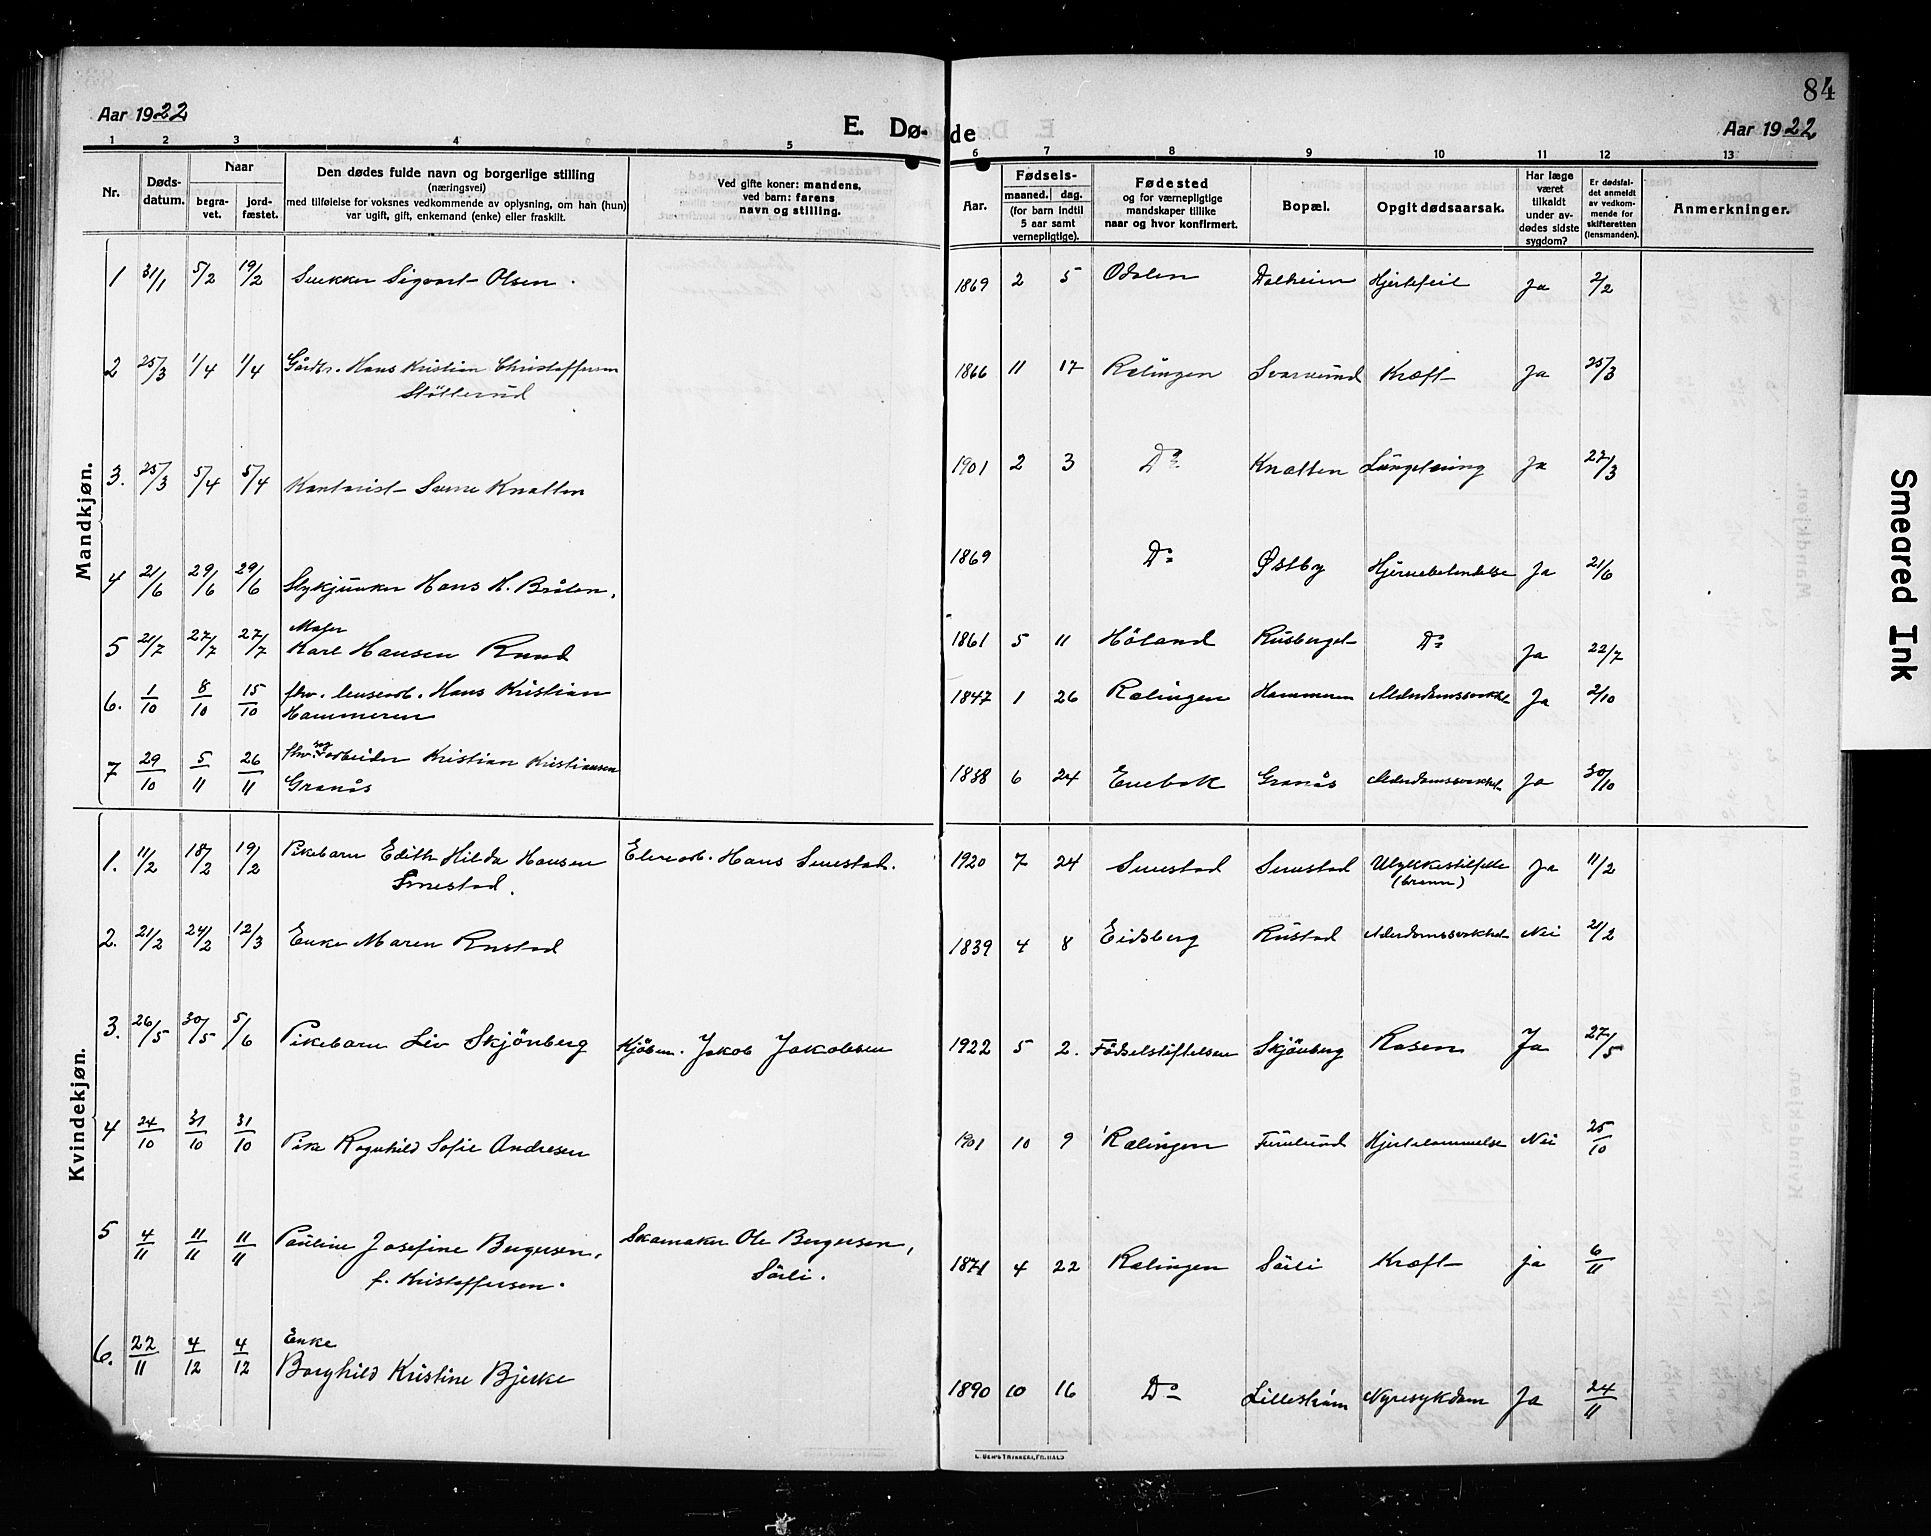 84
Aar 1922
E. Dø-
de
Aar 1922
1 2 3 4 5 6 7 8 9 10 11 12 13
Nr.
Døds-
datum.
Naar
begra-
vet.
jord-
fæstet.
Den dødes fulde navn og borgerlige stilling
(næringsvei)
med tilføielse for voksnes vedkommende av oplysning, om han (hun)
var ugift, gift, enkemand (enke) eller fraskilt.
Ved gifte koner: mandens,
ved barn: farens
navn og stilling.
Aar.
Fødsels-
maaned. dag.
(for barn indtil
5 aar samt
vernepligtige).
Fødested
og for værnepligtige
mandskaper tillike
naar og hvor konfirmert.
Bopæl.
Opgit dødsaarsak.
Har læge
været
tilkaldt
under av-
dødes sidste
sygdom?
Er dødsfal-
det anmeldt
av vedkom-
mende for
skifteretten
(lensmanden).
Anmerkninger.
Mandkjøn.
1 31/1 5/2 19/2 Snekker Sigvart Olsen. 1869 2 5 Odalen Dalheim Hjertefeil Ja 2/2
2 25/3 1/4 1/4 Gårdbr. Hans Kristian Christoffersen 1866 11 17 Rælingen Kræft Ja 25/3
Støtterud
3. 25/3 5/4 5/4 Kontorist Knatten 1901 2 3 Do Knatten Ja 27/3
4 21/6 29/6 29/6 Hans H. Bråten. 1869 Do Østby Hjernebetendelse Ja 21/6
5 21/7 27/7 27/7 Maler
Karl Hansen Ruud 1861 5 11 Höland Rusberget Do Ja 22/7
6. 1/10 8/10 15/10 fhv. Hans Kristian 1847 1 26 Rælingen Hammeren Alderdomssvakhet Ja 2/10
Hammeren
7 29/10 5/11 26/11 fhv. sagarbeider Kristian Kristiansen 1838 6 24 Enebak Granås Alderdomssvakhet Ja 30/10
Granås
Kvindekjøn.
1. 11/2 18/2 19/2 Pikebarn Edith Hilda Hansen Hans Smestad. 1920 7 24 Smestad Smestad Ulykkestilfelle Ja 11/2
Smestad. (brann)
2. 21/2 24/2 12/3 Enke Maren Rustad 1839 4 8 Eidsberg Rustad Alderdomssvakhet Nei 21/2
3. 26/5 30/5 5/6 Pikebarn Liv Skjönberg Kjöbm. Jakob Jakobsen 1922 5 2. Födselstiftelsen Skjönberg Rosen Ja 27/5
4 24/10 31/10 31/10 Pike Ragnhild Sofie Andresen 1901 10 9 Rælingen Furulund Hjertelammelse Nei 25/10
5 4/11 11/11 11/11 Pauline Josefine Bergersen, Skomaker Ole Bergersen, 1871 4 22 Rælingen Sörli Kræft ja 6/11
f. Kristoffersen. Sörli.
6. 22/11 4/12 4/12 Enke
Borghild Kristine Bjerke 1890 10 16 Do Lilleström Nyresykdom Ja 24/11
Smeared Ink